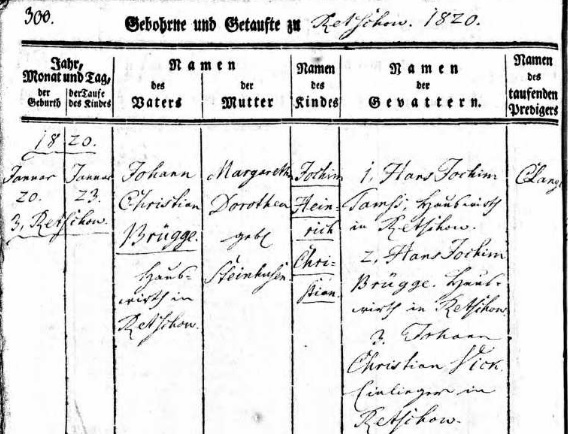 300.
Gebohrne und Getaufte zu Retschow. 1820.
Jahr, Monat und Tag,
der Geburth
der Taufe des Kindes
Namen
des Vaters
der Mutter
Namen des Kindes
Namen der Gevattern.
Namen des taufenden Predigers
1820.
Januar 20.
Januar 23.
3, Retschow.
Johann
Christian
Brügge.
Haus-
wirth in
Retschow.
Margareth
Dorothea
geb.
Steinhusen.
Jochim
Hein-
rich
Chri-
stian.
1, Hans Jochim
Tamss, Hauswirth
in Retschow.
2, Hans Jochim
Brügge. Haus-
wirth in Retschow.
3. Johann
Christian Vick
Einlieger in
Retschow.